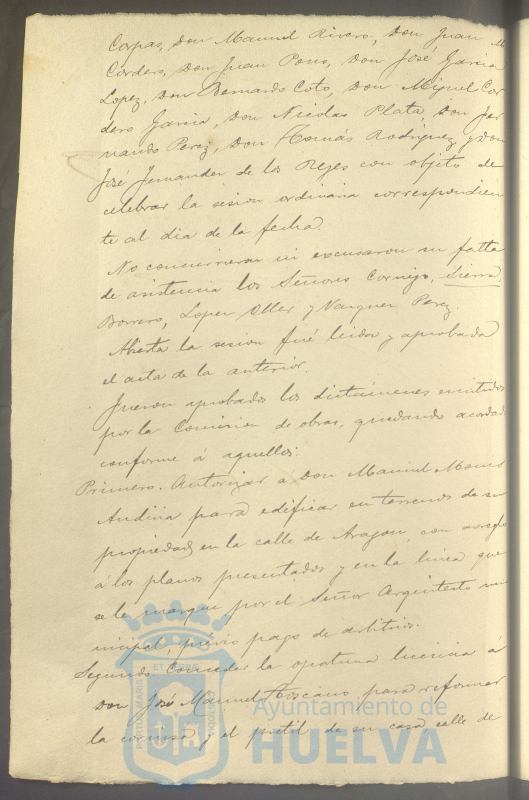 Corpas, Don Manuel Rivero, Don Juan M
Cordero, Don Juan Pons, Don José Garcia
Lopez, Don Bernardo Coto, Don Miguel Cor
dero Garcia, Don Nicolas Plata, Don Fer
nando Perez, Don Tomás Rodriguez y Don
José Fernandez de los Reyes con objeto de
celebrar la sesion ordinaria correspondien
te al dia de la fecha.
No concurrieron ni excusaron su falta
de asistencia los Señores Cornejo, Sierra,
Borrero, Lopez Oller y Vazquez Perez.
Abierta la sesion fué leida y aprobada
el acta de la anterior.
Fueron aprobados los dictámenes emitidos
por la Comision de obras, quedando acordado
conforme á aquellos:
Primero. Autorizar a Don Manuel
Andivia para edificar en terrenos de su
propiedad en la calle de Aragon, con arreglo
á los planos presentados y en la linea que
se le marque por el Señor Arquitecto mu
nicipal, prévio pago de arbitrios.
Segundo. Conceder la oportuna licencia á
Don José Manuel Toscano para reformar
la cornisa y el pretil de su casa calle de
Ayuntamiento de
HUELVA
PORTUS MARIS
ET TERRE
CUSTODIA